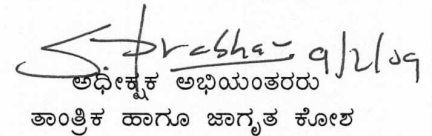 S. Prabha 9/2/09
ಅಧೀಕ್ಷಕ ಅಭಿಯಂತರರು
ತಾಂತ್ರಿಕ ಹಾಗೂ ಜಾಗೃತ ಕೋಶ